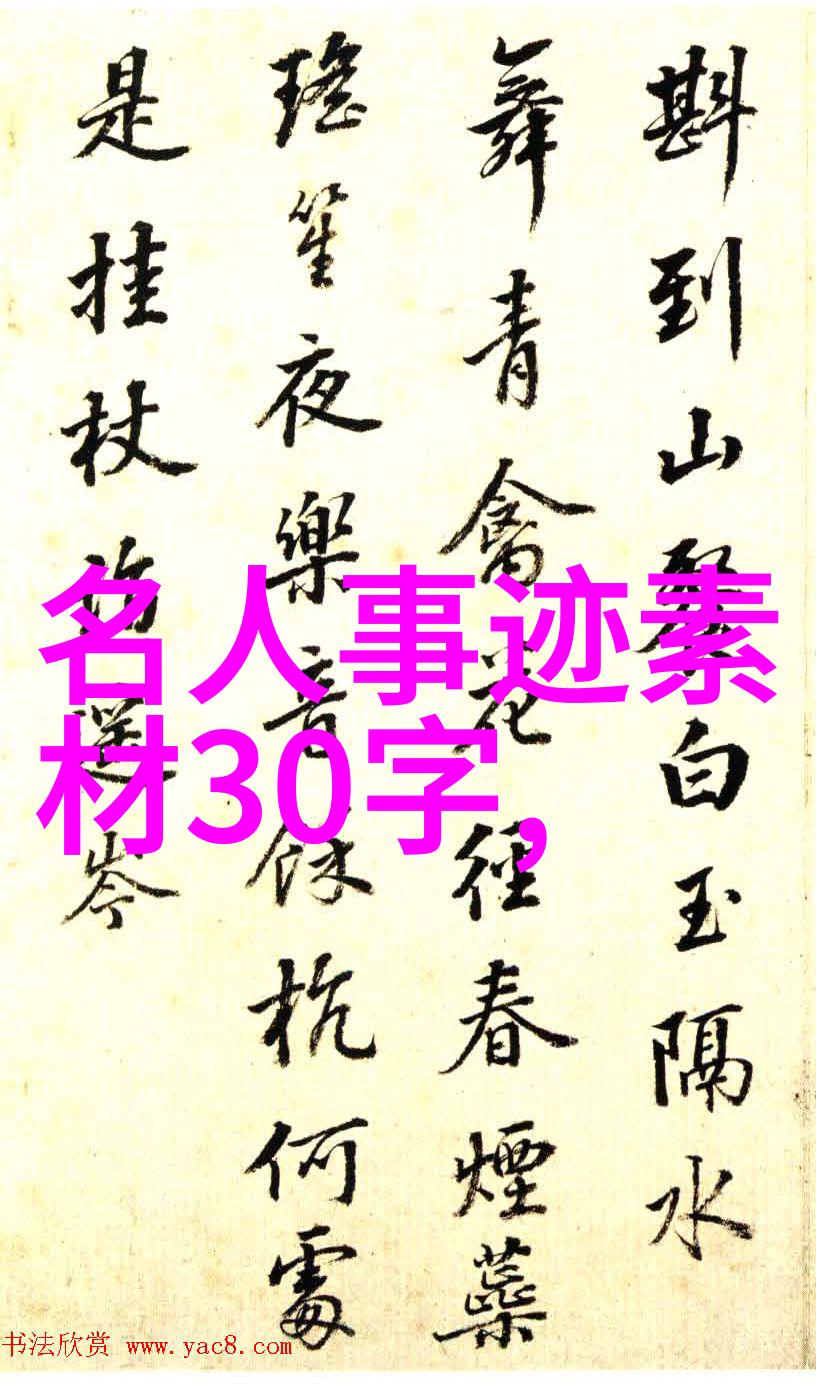 斟到山白玉隔水
舞青禽花徑春煙蘂
瑤笙夜樂音餘杭何處
是挂杖選岑
名人事迹素
材30字,
书法欣赏 www.yac8.com